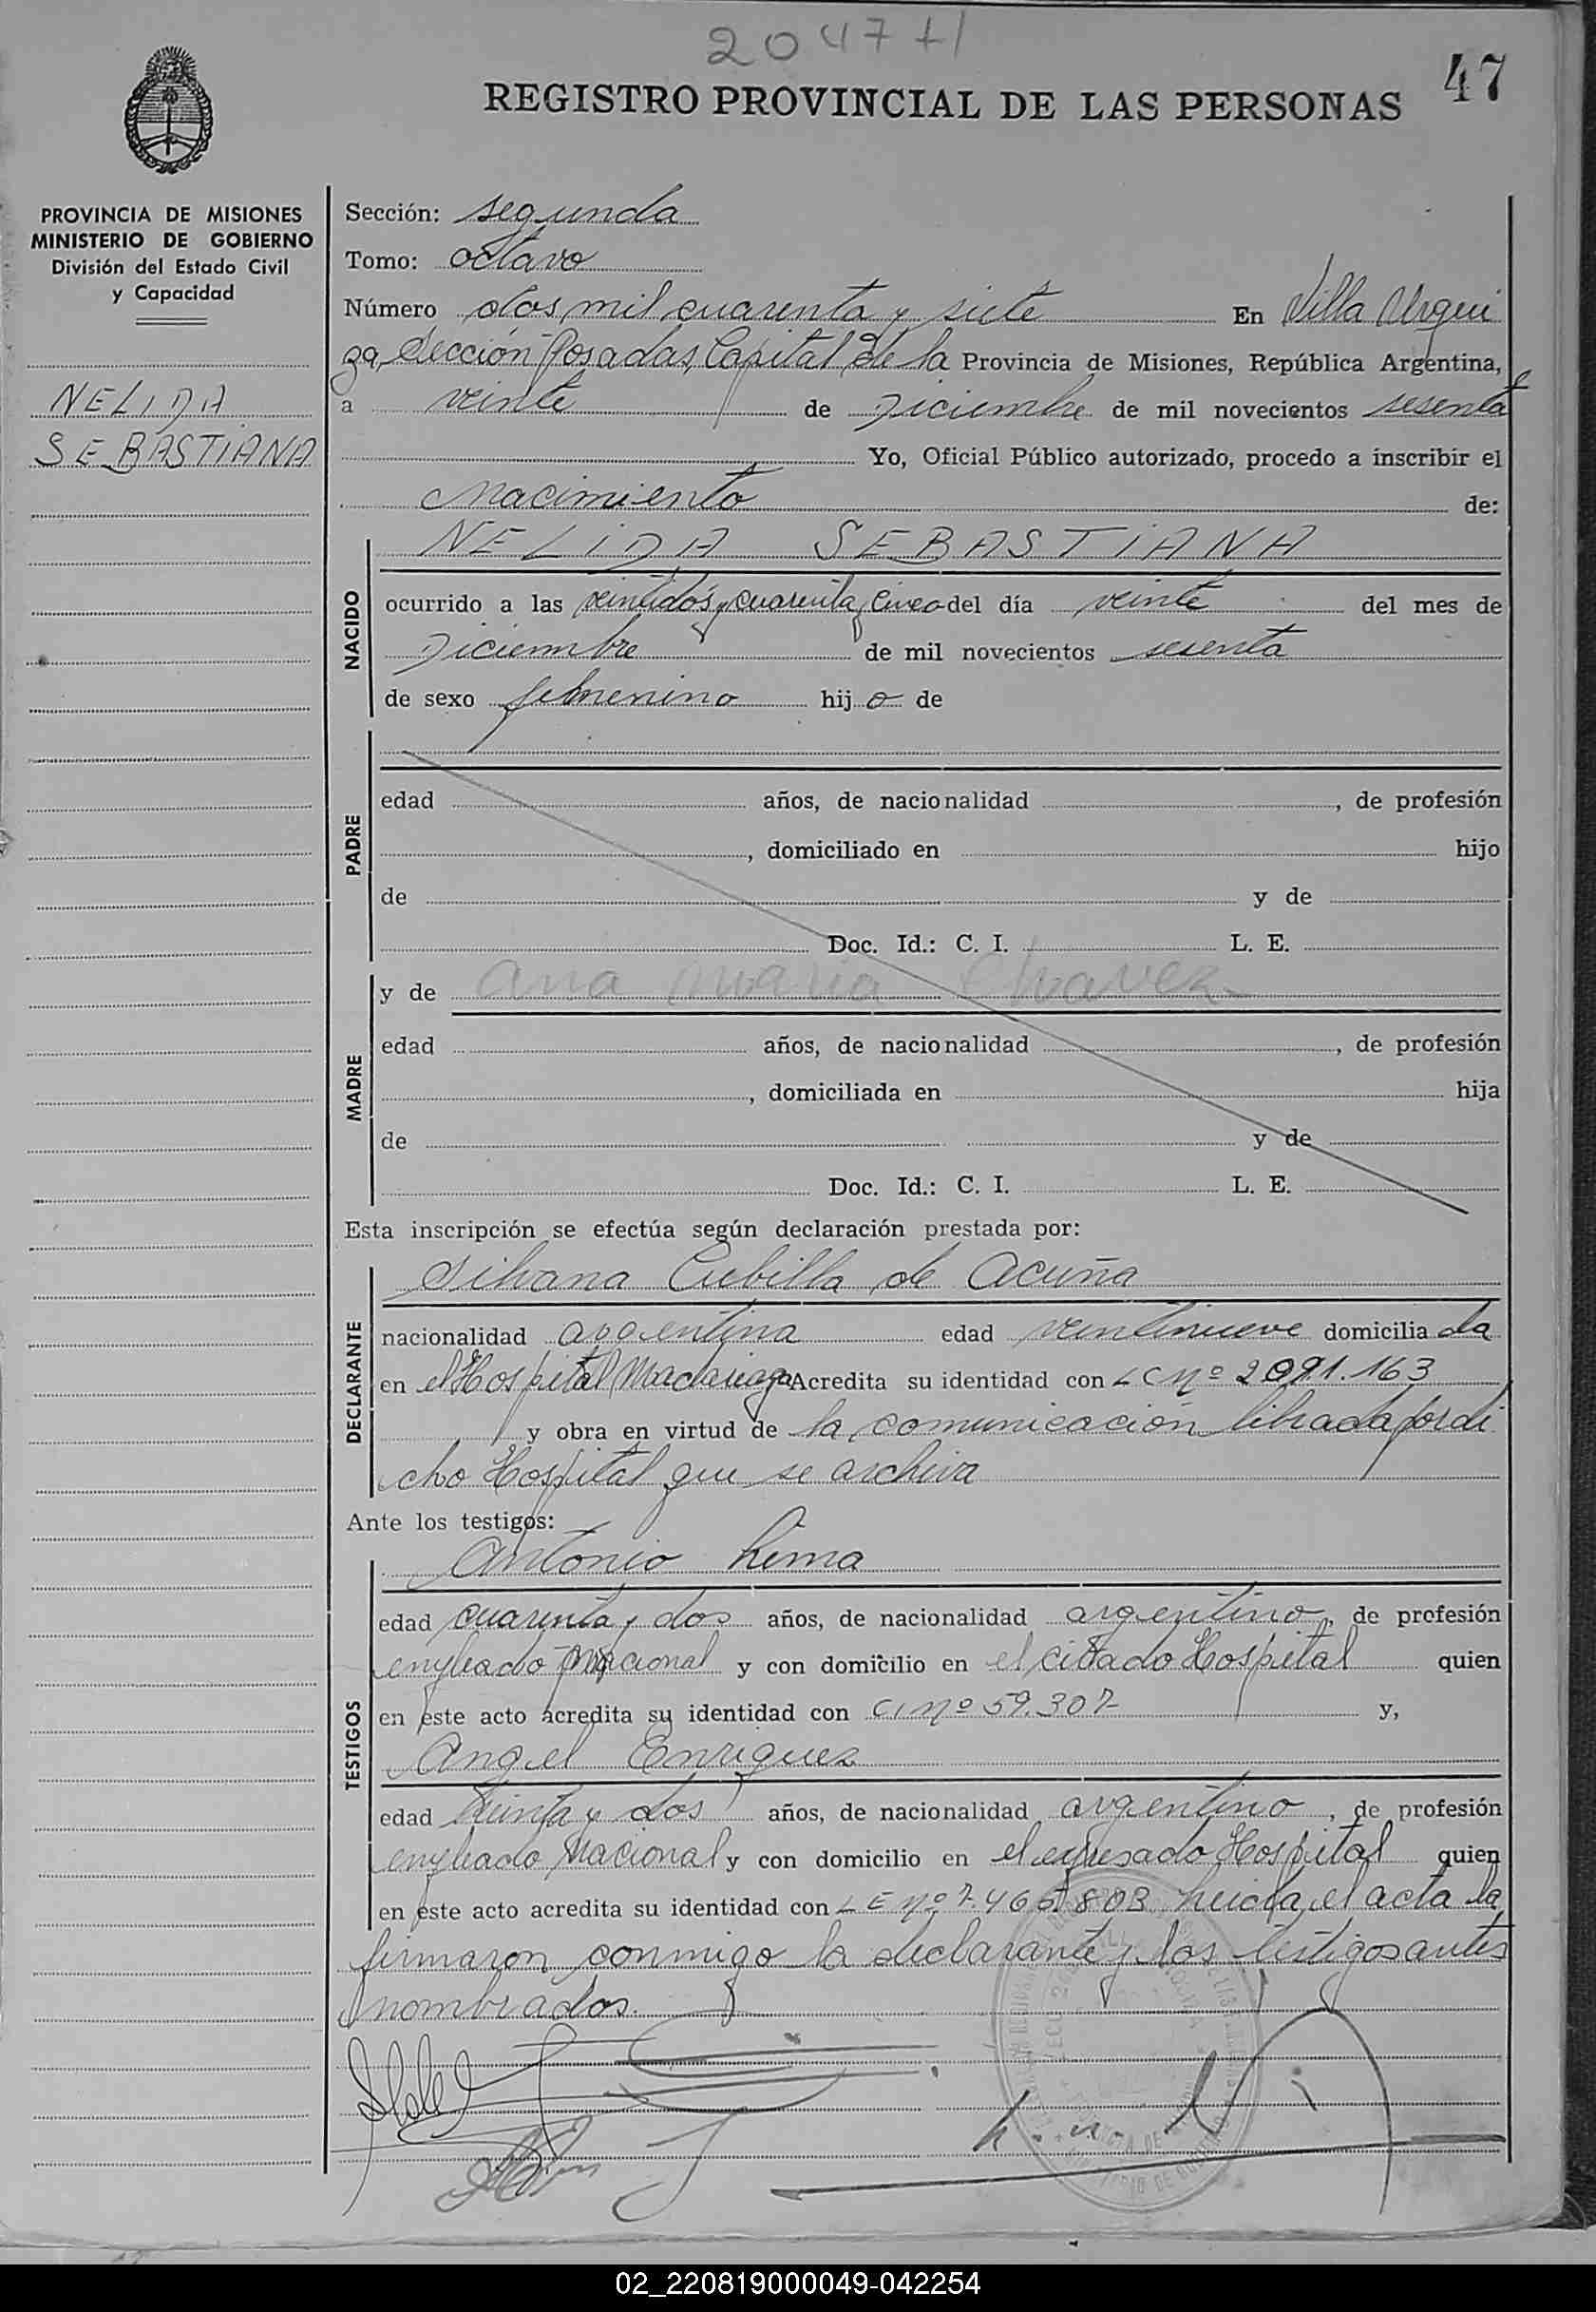 2047 t1
REGISTRO PROVINCIAL DE LAS PERSONAS
47
PROVINCIA DE MISIONES
MINISTERIO DE GOBIERNO
División del Estado Civil
y Capacidad
NELIDA
SEBASTIANA
Sección: segunda
Tomo: octavo
Número dos mil cuarenta y siete En Villa Urqui
za, Sección Posadas, Capital de la Provincia de Misiones, República Argentina,
a veinte de Diciembre de mil novecientos sesenta
Yo, Oficial Público autorizado, procedo a inscribir el
Nacimiento de:
NELIDA SEBASTIANA
NACIDO
ocurrido a las veintidós y cuarenta y cinco del día veinte del mes de
Diciembre de mil novecientos sesenta
de sexo femenino hij a de
PADRE
edad años, de nacionalidad , de profesión
, domiciliado en hijo
de y de
Doc. Id.: C. I. L. E.
MADRE
y de Ana Maria Chavez
edad años, de nacionalidad , de profesión
, domiciliada en hija
de y de
Doc. Id.: C. I. L. E.
Esta inscripción se efectúa según declaración prestada por:
DECLARANTE
Silvana Cubilla de Acuña
nacionalidad argentina edad veintinueve domicilia da
en el Hospital Madariaga Acredita su identidad con LC Nº 2.091.163
y obra en virtud de la comunicación librada por di
cho Hospital que se archiva
Ante los testigos:
TESTIGOS
Antonio Lima
edad cuarenta y dos años, de nacionalidad argentino, de profesión
empleado Nacional y con domicilio en el citado Hospital quien
en este acto acredita su identidad con CI Nº 59.307 y,
Angel Enriquez
edad treinta y dos años, de nacionalidad argentino, de profesión
empleado Nacional y con domicilio en el expresado Hospital quien
en este acto acredita su identidad con LE Nº 7.46 803 leida el acta la
firmaron conmigo la declarante y los testigos antes
nombrados.
02_220819000049-042254